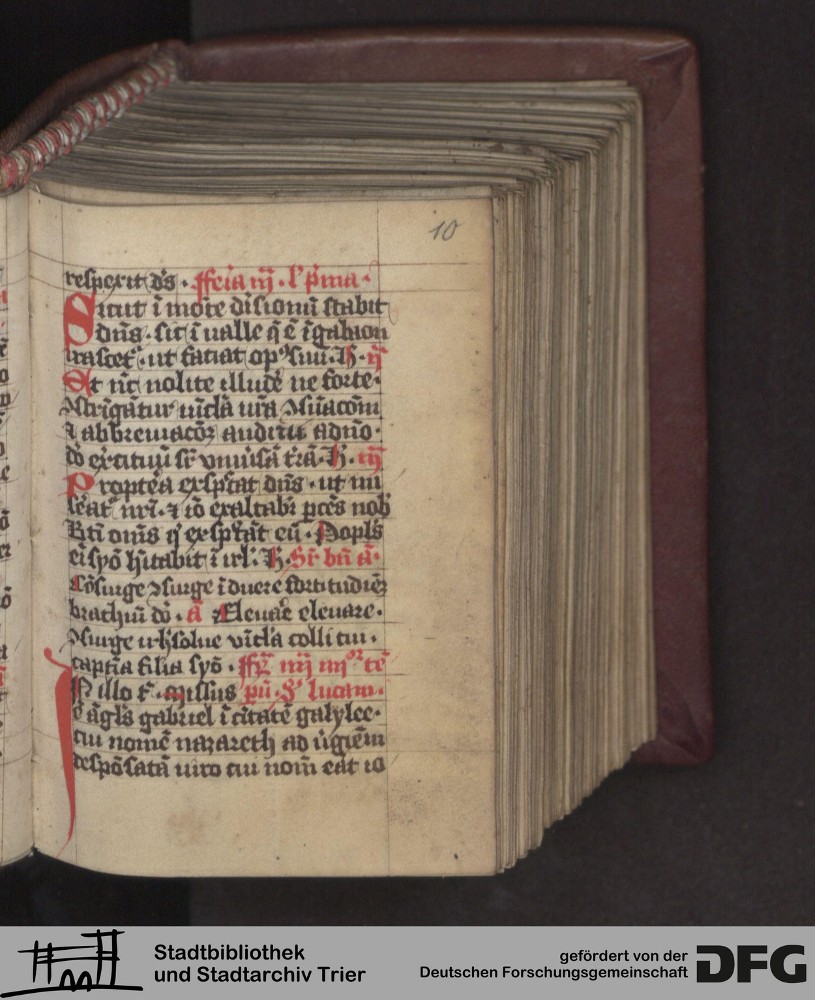 10
resperit dn̄s · ffeīa iij · l' p̄ma ·
Sicut ī mōte diīsionū stabit
dn̄s · sic ī ualle q̄ ē ī gabaon
irascet᷑ · ut faciat opꝰ suū · ij
Et nūc nolite illudē ne forte ·
ꝯstrīgātur uīcla ur̄a
abbreuiacōꝫ audiui a dn̄o ·
dō exrcituū sr̄ vniūsā t̄rā · iij
Propt̄ea exspc̄tat dn̄s · ut mi
se᷑at᷑ nr̄i · ⁊ iō exaltabr̄ p̄cēs nob̄
Bt̄i om̄s q̄ exspc̄tāt eū · Popls̄
ei syō hītabit ī irl̄ ·
Cōsurge ꝯsurge īduere fortitudīeꝫ
brachiū dn̄ · ā Eleuare eleuare ·
ꝯsurge ihr̄lm solue vīcla colli tui ·
captīa filia syō · iiij
In illo t̄ · missus lucam ·
ē āgls̄ gabriel ī ciuitatē galylee ·
cui nomē nazareth ad ūgīem
despōsatā uiro cui nom̄ erat io
Stadtbibliothek
und Stadtarchiv Trier
gefördert von der
Deutschen Forschungsgemeinschaft
DFG